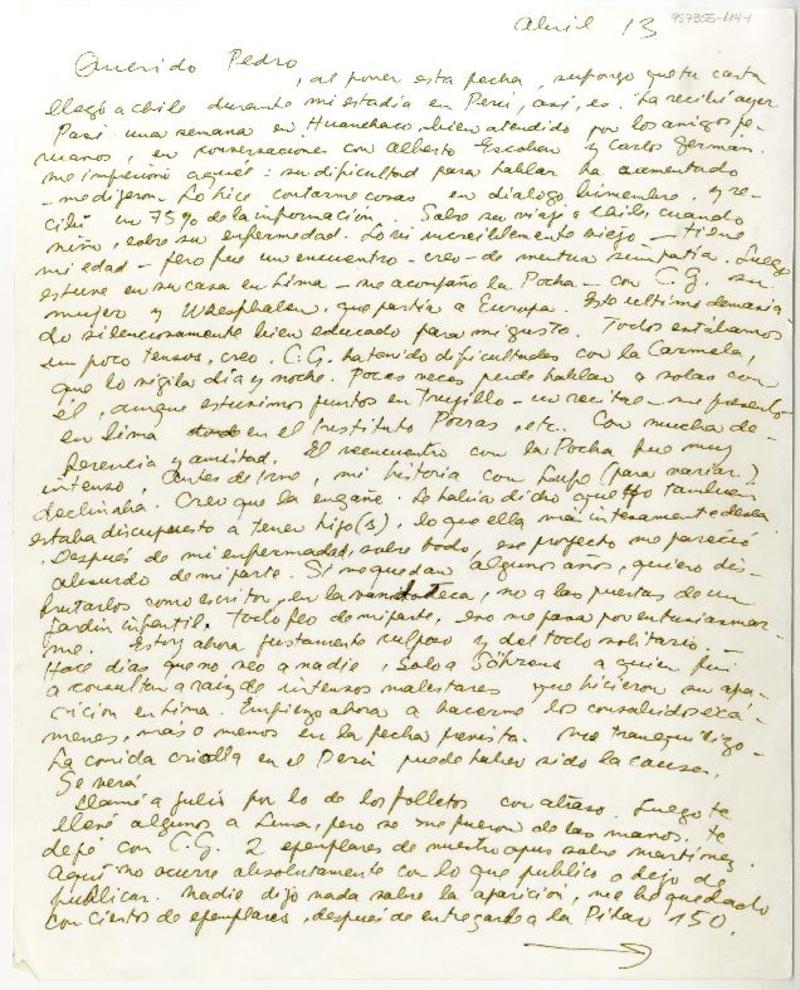 Abril 13
957855-114-1
Querido Pedro
, al poner esta fecha, supongo que tu carta
llegó a Chile durante mi estadía en Perú, así, es. La recibí ayer
Pasé una semana en Huanchaco, bien atendido por los amigos pe-
ruanos, en conversaciones con Alberto Escobar y Carlos Germán.
me impresionó aquél: su dificultad para hablar ha aumentado
- me dijeron - Lo hice contarme cosas en diálogo bimembre, y re-
cibí un 75% de la información. Sobre su viaje a Chile, cuando
niño, sobre su enfermedad. Lo vi increíblemente viejo - tiene
mi edad - pero fue un encuentro - creo - de mutua simpatía. Luego
estuve en su casa en Lima - me acompañó la Pocha - con C.G. su
mujer y Westphalen, que partía a Europa. Este último demasia-
do silenciosamente bien educado para mi gusto. Todos estábamos
un poco tensos, creo. C.G. ha tenido dificultades con la Carmela,
que lo vigila día y noche. Pocas veces pude hablar a solas con
él, aunque estuvimos juntos en Trujillo - un recital - me presentó
en Lima en el Instituto Porras, etc. Con mucha de-
ferencia y amistad. El reencuentro con la Pocha fue muy
intenso. Antes de irme, mi historia con Lupe (para variar)
declinaba. Creo que la engañé. Le había dicho que yo también
estaba discupuesto a tener hijo(s), lo que ella más intesamente desea
. Después de mi enfermedad, sobre todo, ese proyecto me pareció
absurdo de mi parte. Si me quedan algunos años, quiero dis-
frutarlos como escritor, en la, no a las puertas de un
jardín infantil. Todo feo de mi parte, eso me pasa por entusiasmar-
me. Estoy ahora justamente culposo y del todo solitario. -
Hace días que no veo a nadie, Solo a a quien fui
a consultar a raíz de intensos malestares que hicieron su apa-
rición en Lima. Empiezo ahora a hacerme los consabidos exá-
menes, más o menos en la fecha prevista. Me tranquilizo -
La comida criolla en el Perú puede haber sido la causa.
Se verá
Llamé a Julio por lo de los folletos con atraso. Luego te
llevé algunos a Lima, pero se me fueron de las manos. te
dejé con C.G. 2 ejemplares de nuestro opus sobre Martínez.
Aquí no ocurre absolutamente con lo que publico o dejo de
publicar. Nadie dijo nada sobre la aparición, me he quedado
con cientos de ejemplares, después de entregarle a la Pilar 150.